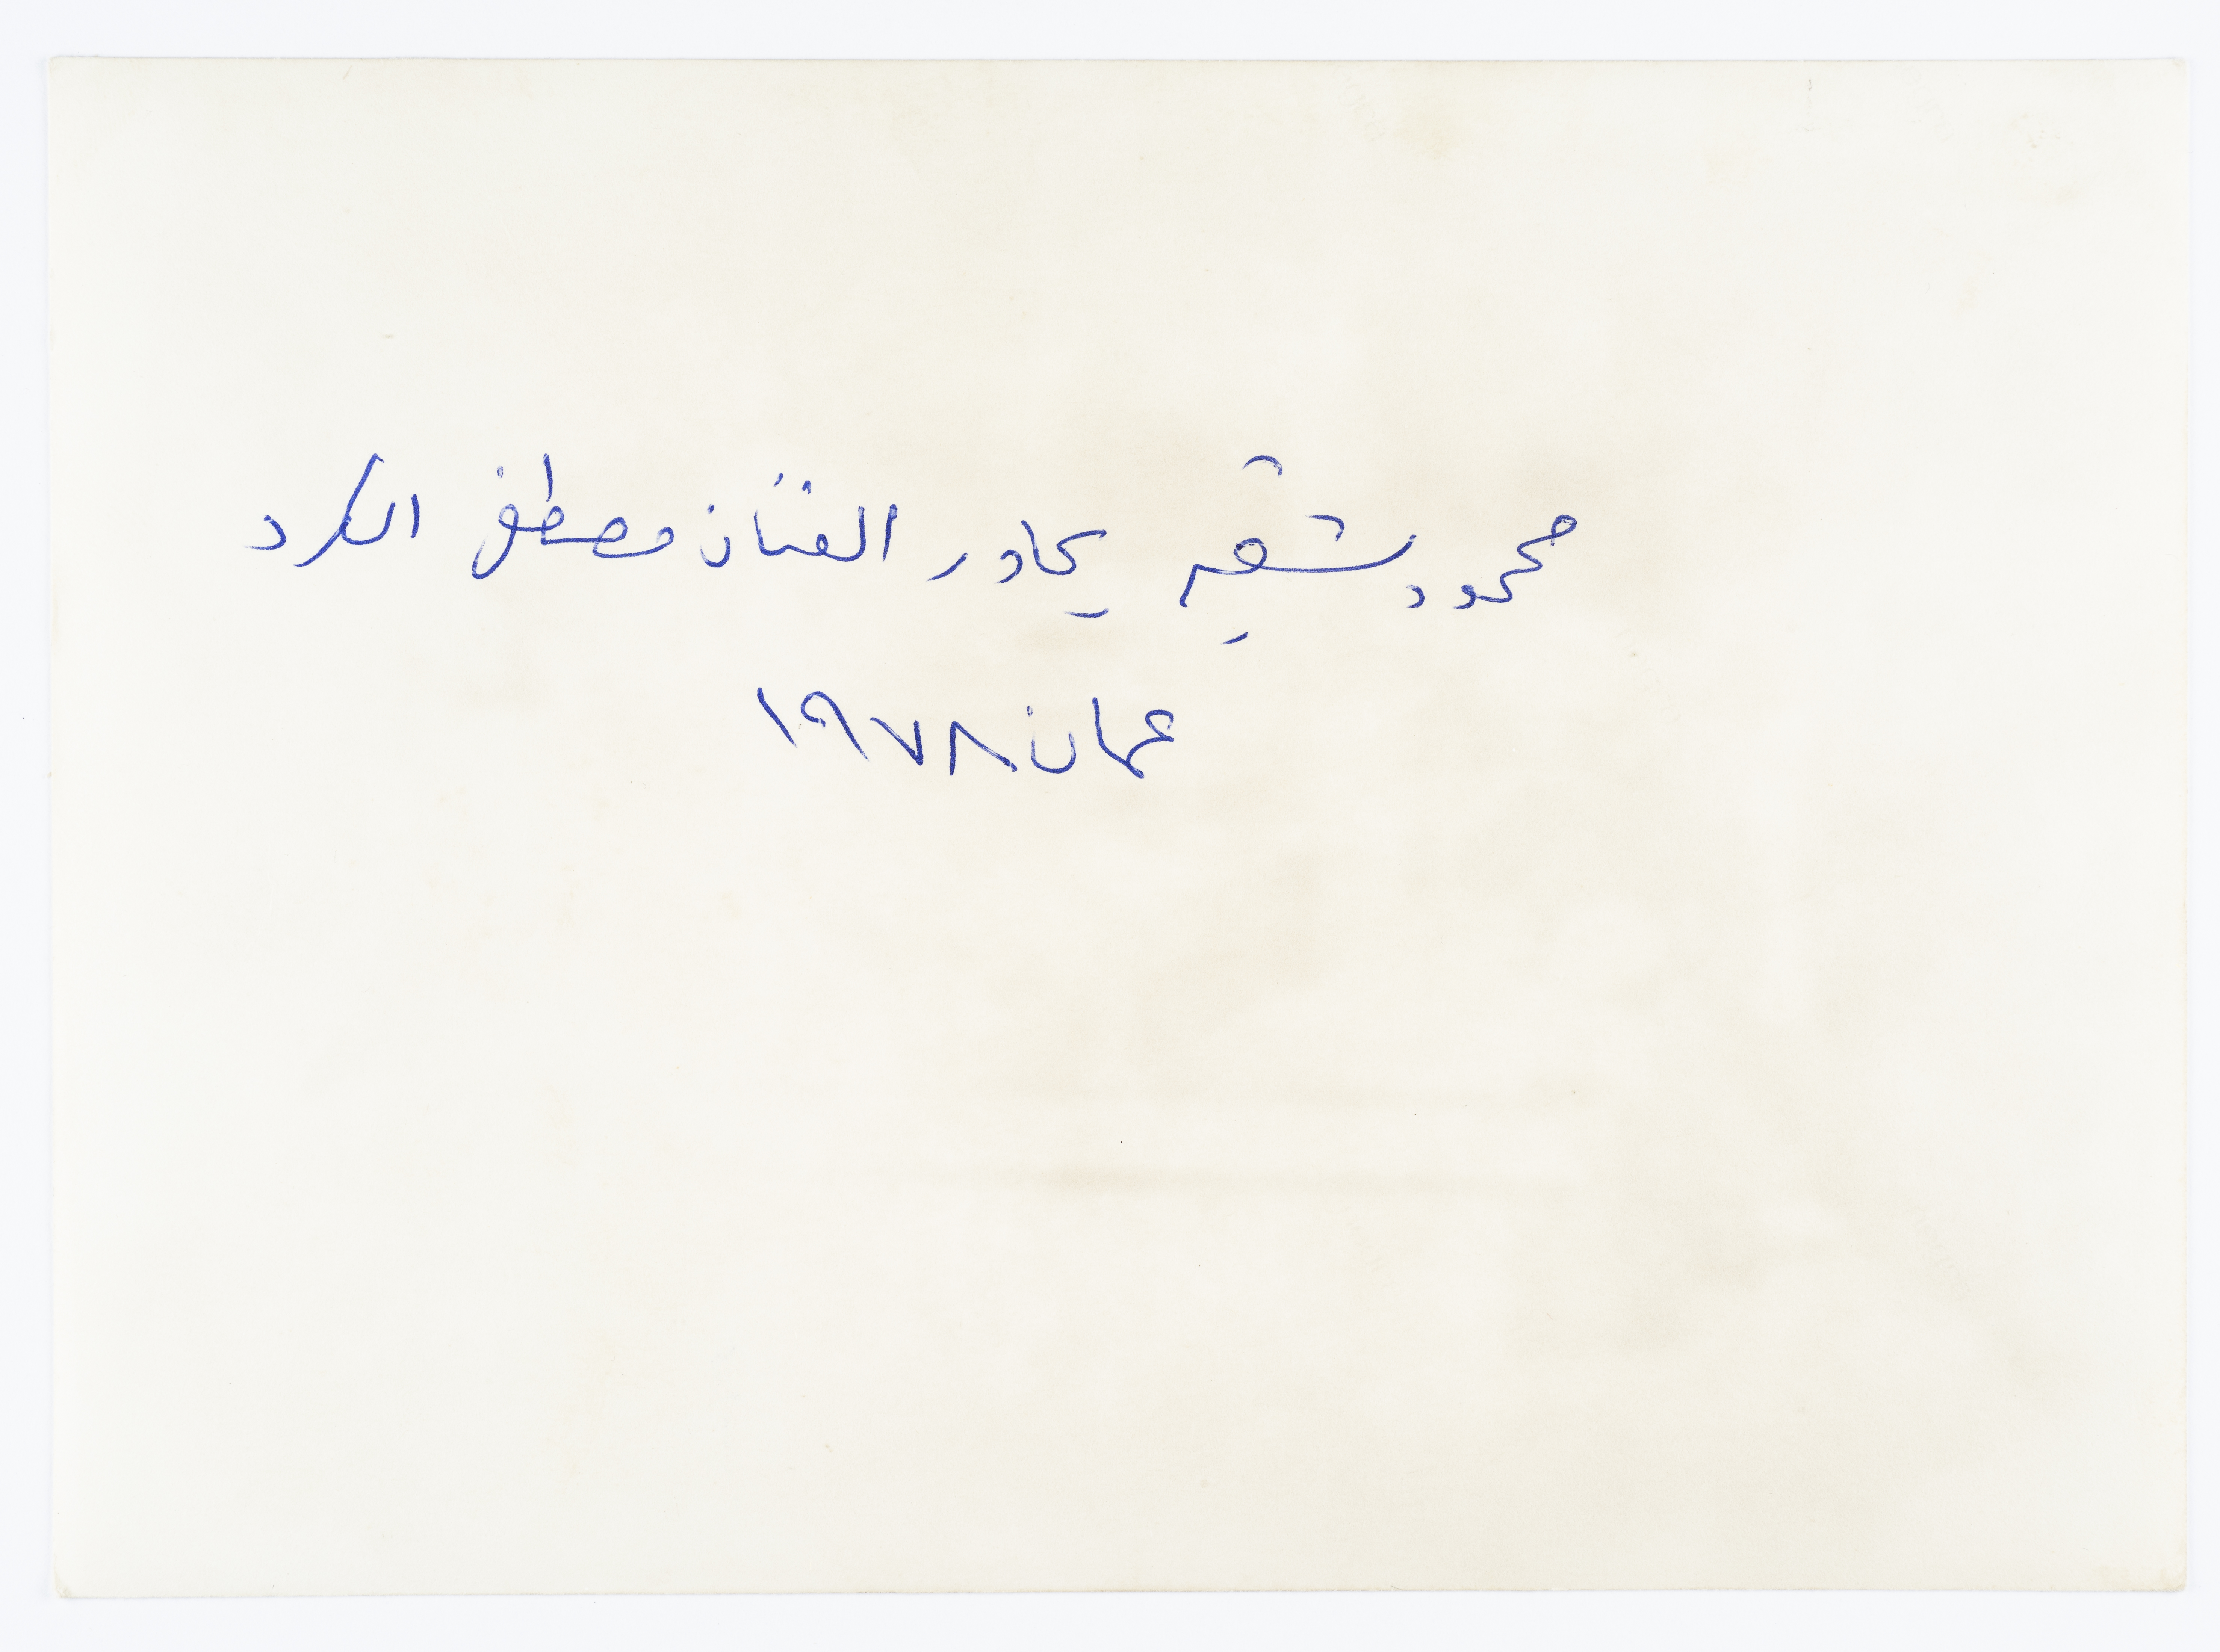 محمود شقير يحاور الفنان مصطفى الكرد
عمان ١٩٧٨